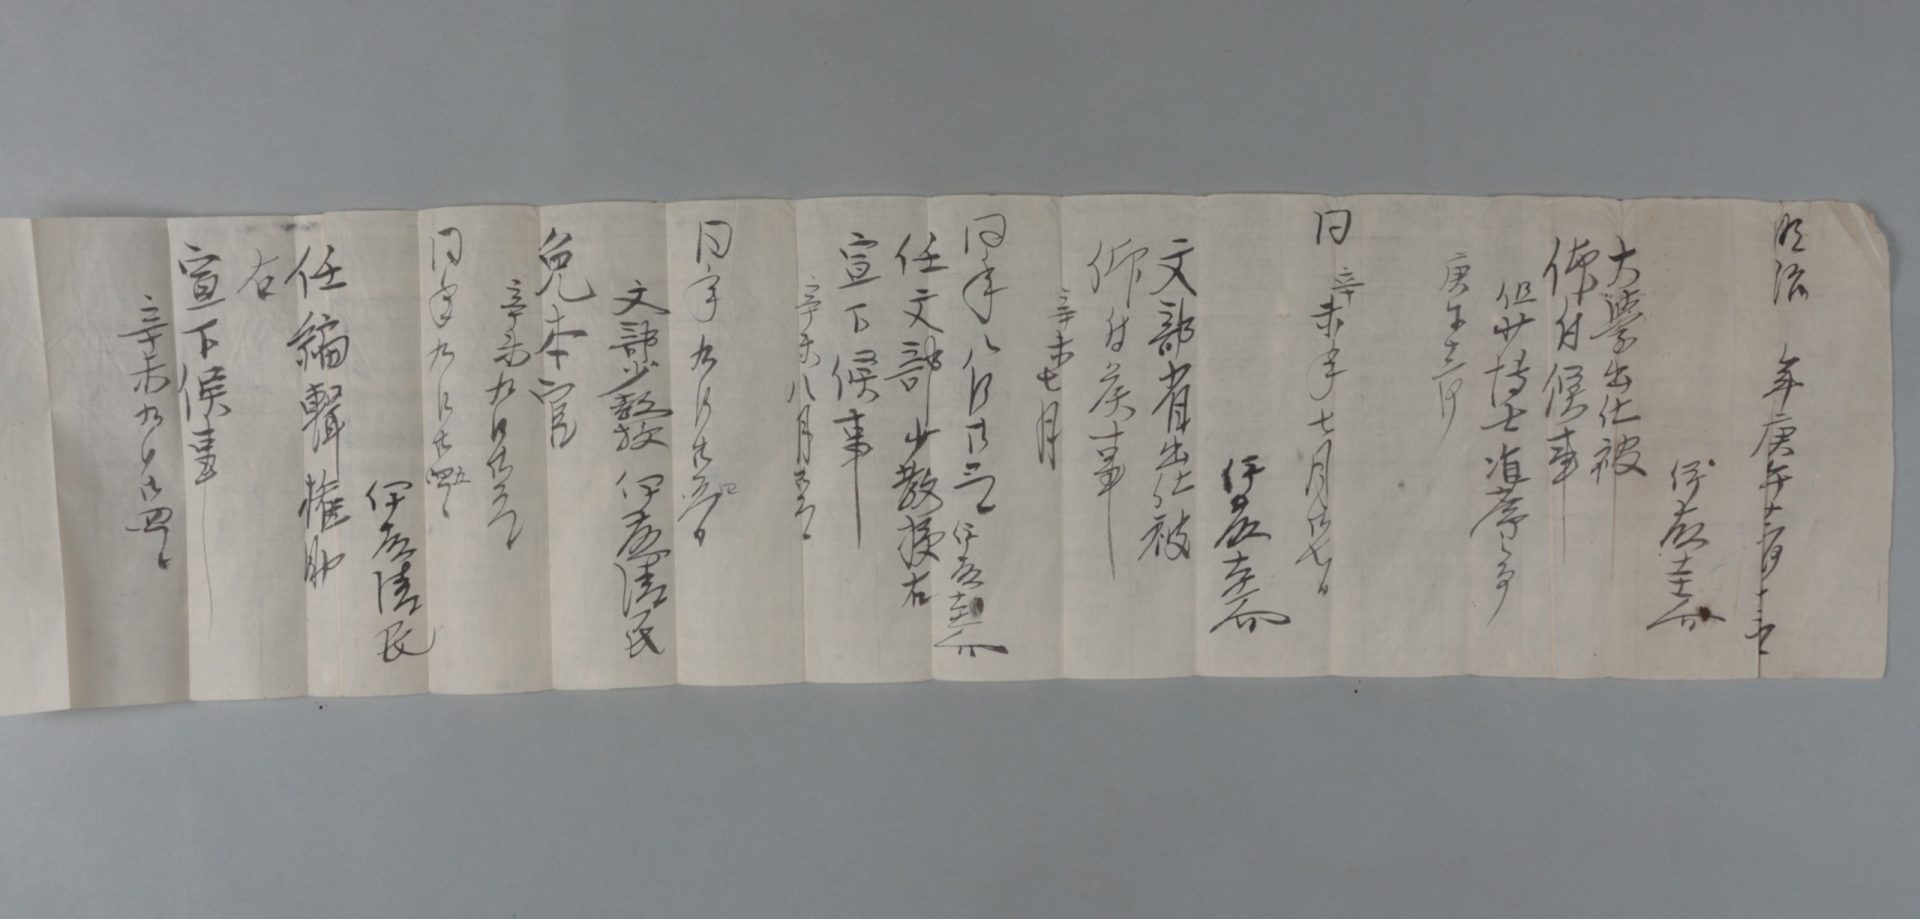 明治 年庚午十二月十二日
伊藤圭介
大學出仕被
仰付候事
但少博士准席之事
庚午十二月
同 辛未年七月廿七日
伊藤圭介
文部省出仕被
仰付候事
辛未七月
同年八月廿三日 伊藤圭介
任文部少教授右
宣下候事
辛未八月
同年九月廿
文部少教授 伊藤清民
免本官
辛未九月廿
同年九月廿四日
伊藤清民
任編輯権助
右
宣下候事
辛未九月廿四日